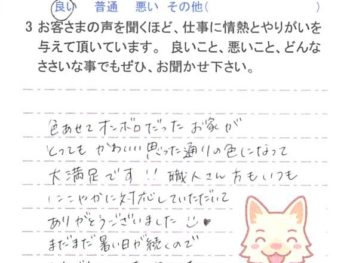 良い 普通 悪い その他( )
3 お客さまの声を聞くほど、仕事に情熱とやりがいを
与えて頂いています。 良いこと、悪いこと、どんな
ささいな事でもぜひ、お聞かせ下さい。
色あせてオンボロだったお家が
とってもかわいい思った通りの色になって
大満足です!! 職人さん方もいつも
にこやかに対応していただいて
ありがとうございました
まだまだ暑い日が続くので